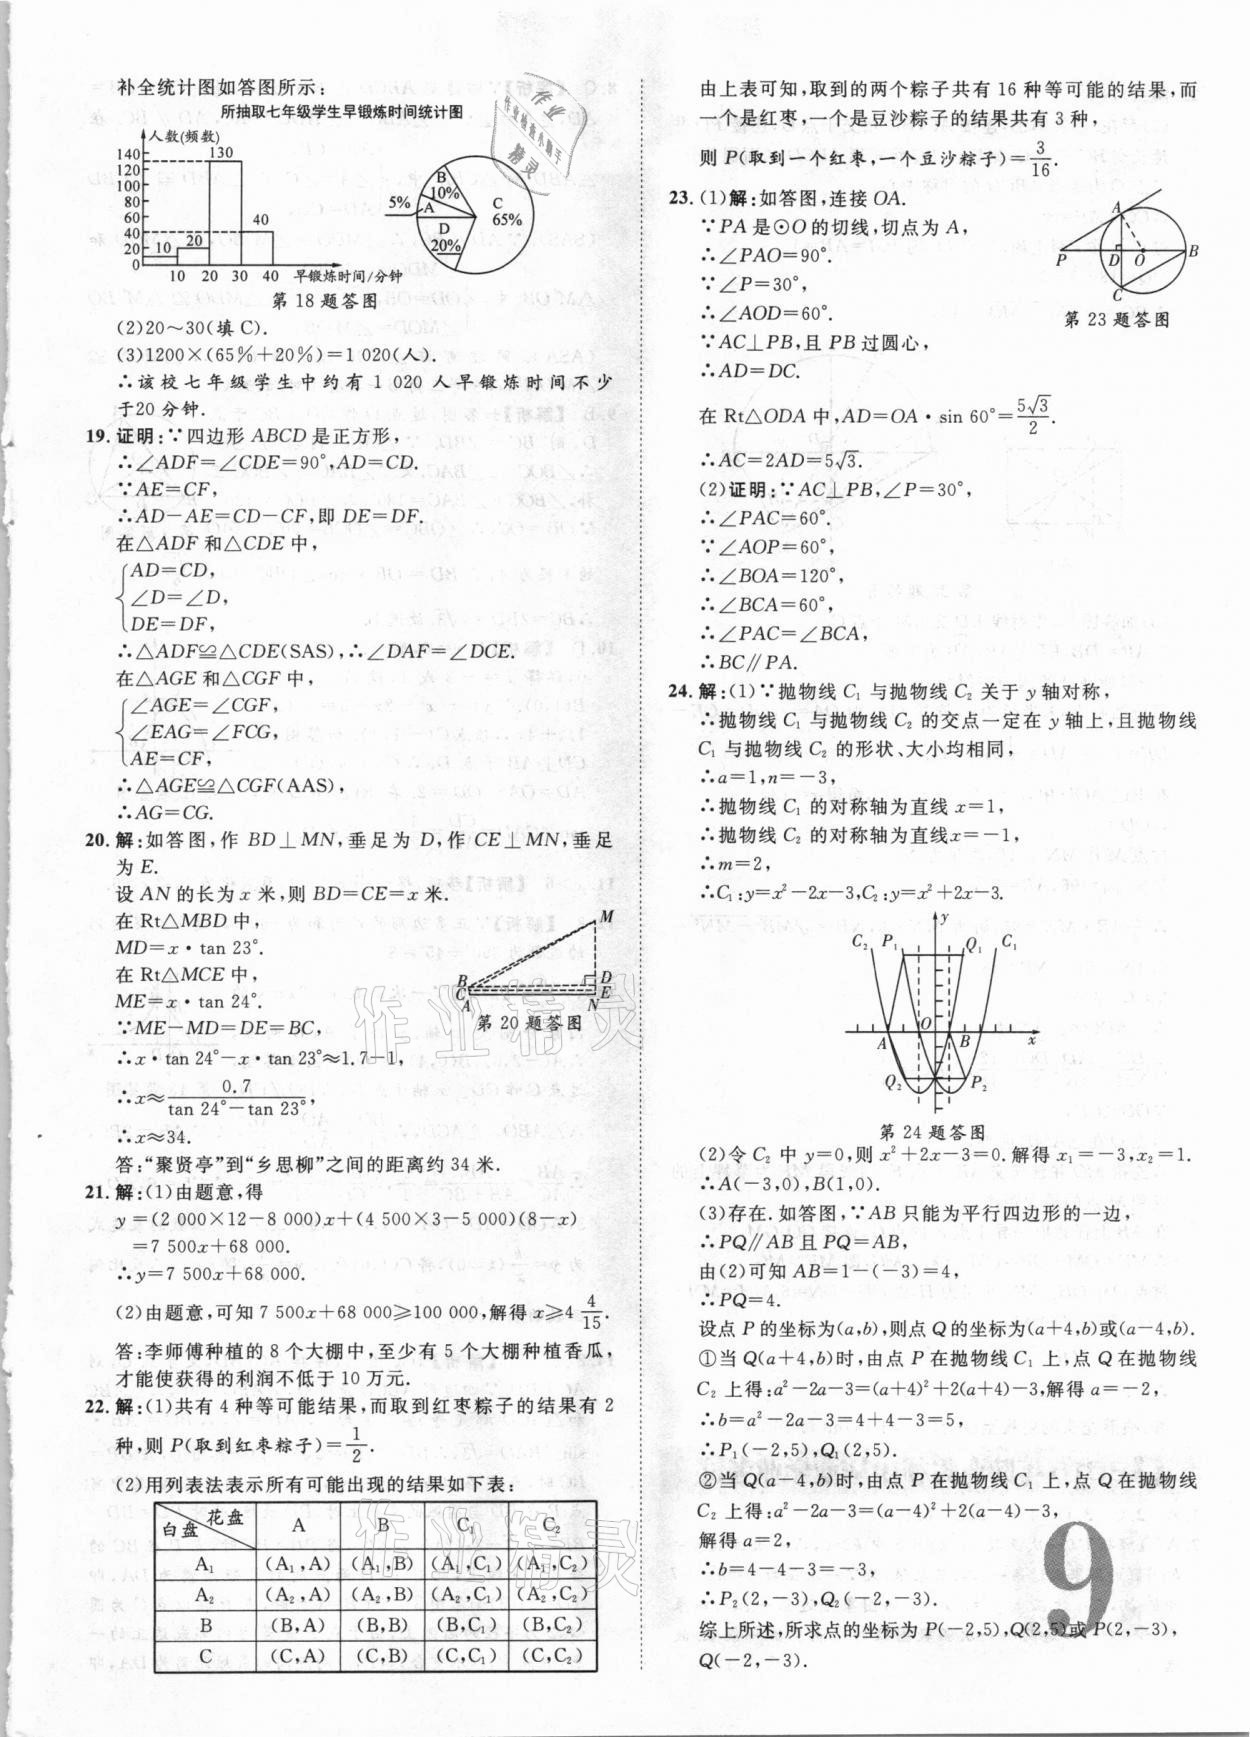 补全统计图如答图所示:
所抽取七年级学生早锻炼时间统计图
人数(频数)
140
120
100
80
60
40
20
0
130
40
20
10
10 20 30 40 早锻炼时间/分钟
B
10%
5%
A
C
65%
D
20%
第18题答图
(2)20～30(填C).
(3)1200×(65%+20%)=1 020(人).
∴该校七年级学生中约有 1 020 人早锻炼时间不少
于20分钟.
19.证明:∵四边形ABCD是正方形,
∴∠ADF=∠CDE=90°,AD=CD.
∵AE=CF,
∴AD-AE=CD-CF,即DE=DF.
在△ADF和△CDE中,
AD=CD,
∠D=∠D,
DE=DF,
∴△ADF≌△CDE(SAS),∴∠DAF=∠DCE.
在△AGE和△CGF中,
∠AGE=∠CGF,
∠EAG=∠FCG,
AE=CF,
∴△AGE≌△CGF(AAS),
∴AG=CG.
20.解:如答图,作 BD⊥MN,垂足为 D,作 CE⊥MN,垂足
为E.
设AN的长为x米,则BD=CE=x米.
在Rt△MBD中,
MD=x·tan 23°.
在Rt△MCE中,
ME=x·tan 24°.
∵ME-MD=DE=BC,
∴x·tan 24°-x·tan 23°≈1.7-1,
∴x≈0.7/(tan 24°-tan 23°),
∴x≈34.
答:“聚贤亭”到“乡思柳”之间的距离约34米.
M
B
C
A
D
E
N
第20题答图
21.解:(1)由题意,得
y=(2 000×12-8 000)x+(4 500×3-5 000)(8-x)
=7 500x+68 000.
∴y=7 500x+68 000.
(2)由题意,可知7 500x+68 000≥100 000,解得x≥4 4/15.
答:李师傅种植的8个大棚中,至少有5个大棚种植香瓜,
才能使获得的利润不低于10万元.
22.解:(1)共有4种等可能结果,而取到红枣粽子的结果有2
种,则P(取到红枣粽子)=1/2.
(2)用列表法表示所有可能出现的结果如下表:
白盘 花盘 A B C₁ C₂
A₁ (A₁,A) (A₁,B) (A₁,C₁) (A₁,C₂)
A₂ (A₂,A) (A₂,B) (A₂,C₁) (A₂,C₂)
B (B,A) (B,B) (B,C₁) (B,C₂)
C (C,A) (C,B) (C,C₁) (C,C₂)
由上表可知,取到的两个粽子共有16种等可能的结果,而
一个是红枣,一个是豆沙粽子的结果共有3种,
则P(取到一个红枣,一个豆沙粽子)=3/16.
23.(1)解:如答图,连接OA.
∵PA是⊙O的切线,切点为A,
∴∠PAO=90°.
∵∠P=30°,
∴∠AOD=60°.
∵AC⊥PB,且PB过圆心,
∴AD=DC.
A
P
D
O
B
C
第23题答图
在Rt△ODA中,AD=OA·sin 60°=5√3/2.
∴AC=2AD=5√3.
(2)证明:∵AC⊥PB,∠P=30°,
∴∠PAC=60°.
∵∠AOP=60°,
∴∠BOA=120°,
∴∠BCA=60°,
∴∠PAC=∠BCA,
∴BC∥PA.
24.解:(1)∵抛物线C₁与抛物线C₂关于y轴对称,
∴抛物线C₁与抛物线C₂的交点一定在y轴上,且抛物线
C₁与抛物线C₂的形状、大小均相同,
∴a=1,n=-3,
∴抛物线C₁的对称轴为直线x=1,
∴抛物线C₂的对称轴为直线x=-1,
∴m=2,
∴C₁:y=x²-2x-3,C₂:y=x²+2x-3.
y
C₂ P₁ Q₁ C₁
A O B x
Q₂ P₂
第24题答图
(2)令C₂中y=0,则x²+2x-3=0.解得x₁=-3,x₂=1.
∴A(-3,0),B(1,0).
(3)存在.如答图,∵AB只能为平行四边形的一边,
∴PQ∥AB且PQ=AB,
由(2)可知AB=1-(-3)=4,
∴PQ=4.
设点P的坐标为(a,b),则点Q的坐标为(a+4,b)或(a-4,b).
①当Q(a+4,b)时,由点P在抛物线C₁上,点Q在抛物线
C₂上得:a²-2a-3=(a+4)²+2(a+4)-3,解得a=-2,
∴b=a²-2a-3=4+4-3=5,
∴P₁(-2,5),Q₁(2,5).
②当Q(a-4,b)时,由点P在抛物线C₁上,点Q在抛物线
C₂上得:a²-2a-3=(a-4)²+2(a-4)-3,
解得a=2,
∴b=4-4-3=-3,
∴P₂(2,-3),Q₂(-2,-3).
综上所述,所求点的坐标为P(-2,5),Q(2,5)或P(2,-3),
Q(-2,-3).
9
作业精灵
作业精灵